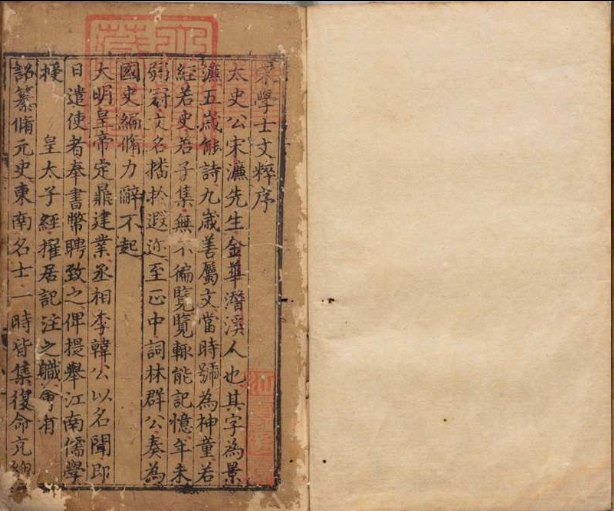 宋學士文粹序
太史公宋濂先生金華潛溪人也其字為景
濂五歲能詩九歲善屬文當時號為神童若
經若史若子集無不徧覽覽輙能記憶年未
弱冠文名播於遐迩至正中詞林群公奏為
國史編脩力辭不起
大明皇帝定鼎建業丞相李韓公以名聞即
日遣使者奉書幣聘致之俾提舉江南儒學
授 皇太子經擢居記注之職會有
詔纂脩元史東南名士一時皆集復命充